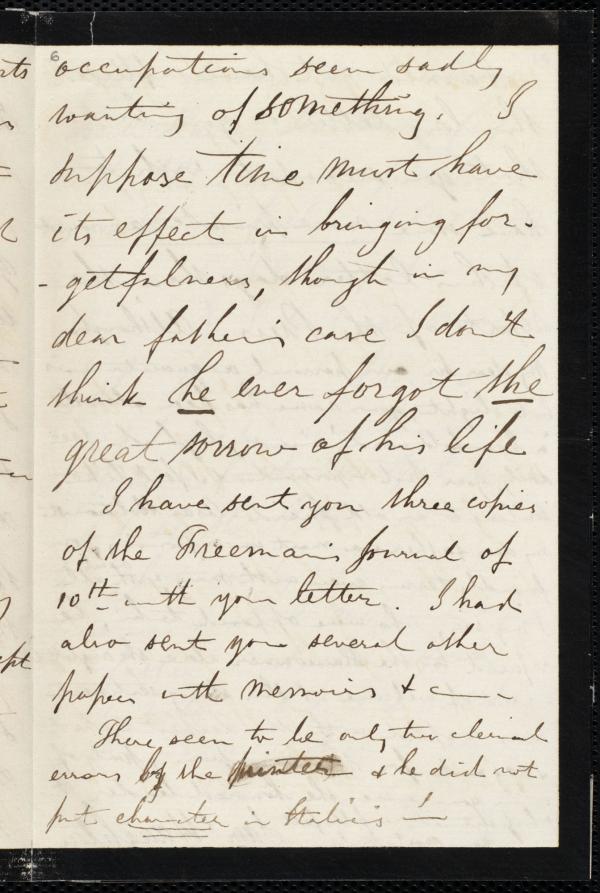 6
occupations seem sadly
wanting of something. I
suppose time must have
its effect in bringing for-
-getfulness, though in my
dear father's case I don't
think he ever forgot the
great sorrow of his life
I have sent you three copies
of the Freeman's Journal of
10th with your letter. I had
also sent you several other
papers with memoirs & c
There seem to be only two clerical
errors by the printer & he did not
put character in Italics !